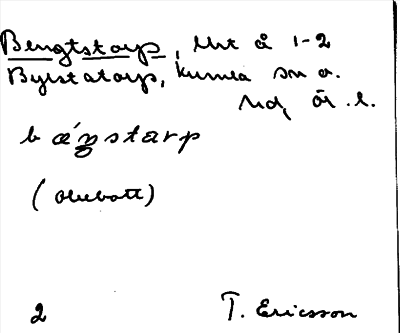 Bengtstorp, Mt å 1-2
Bylstatorp, Kumla sn o.
Nd, Ör. l.
b ǽŋstærp
(obebott)
2 T. Ericson